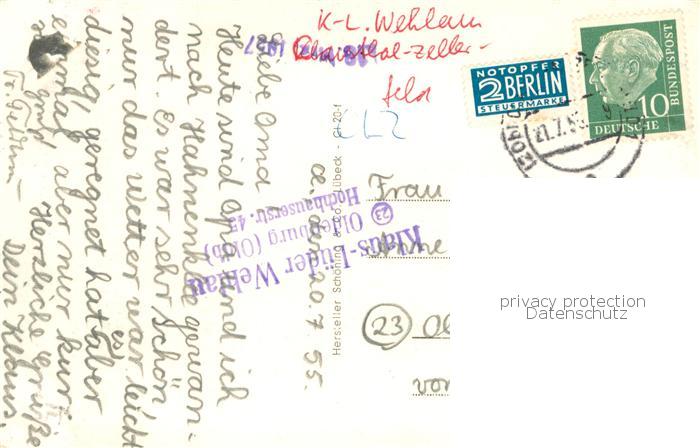 a. d. 20. 7. 55.
Liebe Oma!
Heute sind Opa und ich
nach Hahnenklee gewan-
dert. Es war sehr schön
nur das Wetter war leicht
diesig, geregnet hat es aber
einmal, aber nur kurz
Herzliche Grüße
Dein Klaus.
Gruß
K-L. Wehlau
Clausthal-Zeller-
feld
CLZ
1957
NOTOPFER
2 BERLIN
STEUERMARKE
10
DEUTSCHE
BUNDESPOST
21.7.55
Frau
(23) Ol
vor
Klaus-Lüder Wehlau
(23) Oldenburg (Oldb)
Hochhauserstr. 45
Hersteller Schöning & Co., Lübeck
privacy protection
Datenschutz